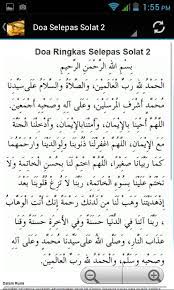 1:55 PM
Doa Selepas Solat 2
Doa Ringkas Selepas Solat 2
بِسْمِ اللهِ الرَّحْمَنِ الرَّحِيْمِ
اَلْحَمْدُ لِلَّهِ رَبِّ الْعَالَمِيْنَ، وَالصَّلَاةُ وَالسَّلَامُ عَلَى سَيِّدِنَا
مُحَمَّدٍ أَشْرَفِ الْمُرْسَلِيْنَ، وَعَلَى آلِهِ وَصَحْبِهِ أَجْمَعِيْنَ.
اَللَّهُمَّ أَحْيِنَا بِالإِيْمَانِ، وَأَمِتْنَا بِالإِيْمَانِ، وَأَدْخِلْنَا الْجَنَّةَ
مَعَ الإِيْمَانِ، اللَّهُمَّ اغْفِرْلَنَا ذُنُوْبَنَا وَلِوَالِدِيْنَا وَارْحَمْهُمَا
كَمَا رَبَّيَانَا صِغَارًا، اللَّهُمَّ اخْتِمْ لَنَا بِحُسْنِ الْخَاتِمَةِ، وَلَا
تَخْتِمْ عَلَيْنَا بِسُوْءِ الْخَاتِمَةِ، رَبَّنَا لَا تُزِغْ قُلُوْبَنَا بَعْدَ
إِذْ هَدَيْتَنَا وَهَبْ لَنَا مِنْ لَدُنْكَ رَحْمَةً إِنَّكَ أَنْتَ الْوَهَّابُ
، رَبَّنَا آتِنَا فِي الدُّنْيَا حَسَنَةً وَفِي الآخِرَةِ حَسَنَةً وَقِنَا
عَذَابَ النَّارِ، وَصَلَّى اللهُ عَلَى سَيِّدِنَا مُحَمَّدٍ وَعَلَى آلِهِ
وَصَحْبِهِ وَسَلَّمَ، وَالْحَمْدُ لِلَّهِ رَبِّ الْعَالَمِيْنَ.
Dalam Rumi